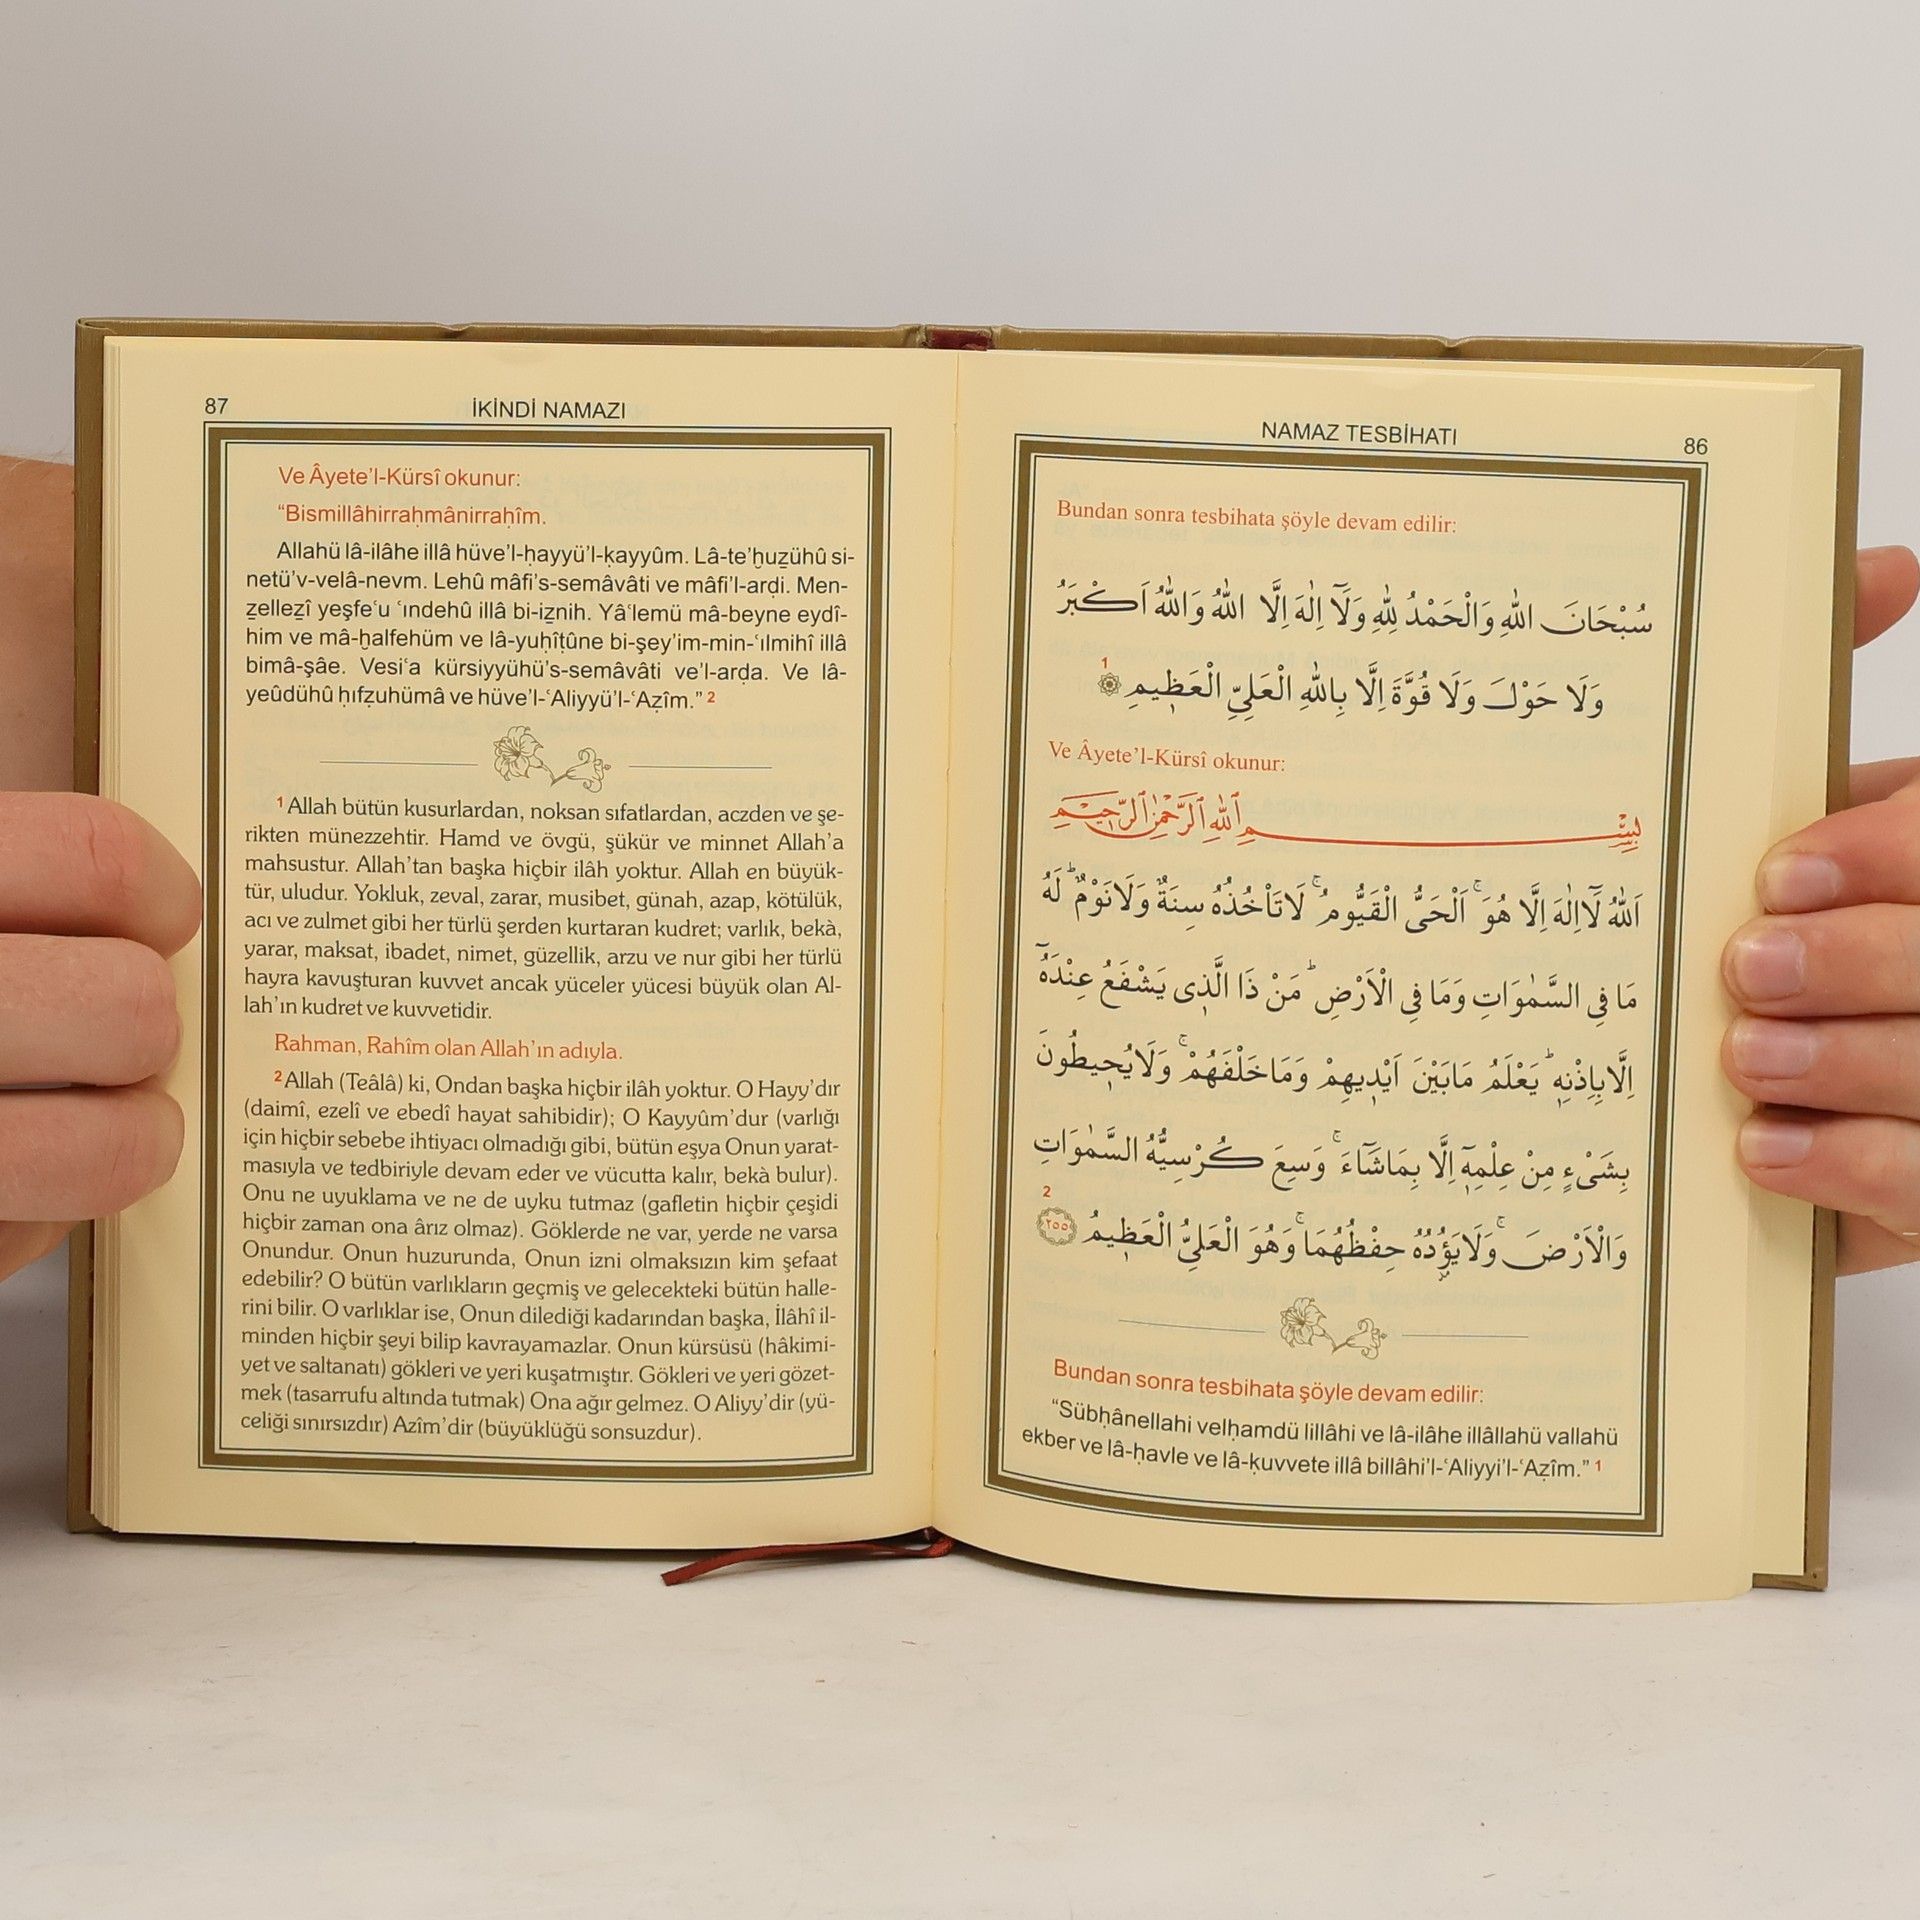 NAMAZ TESBİHATI
86
Bundan sonra tesbihata şöyle devam edilir:
سُبْحَانَ اللّٰهِ وَالْحَمْدُ لِلّٰهِ وَلَٓا اِلٰهَ اِلَّا اللّٰهُ وَاللّٰهُ اَكْبَرُ
وَلَا حَوْلَ وَلَا قُوَّةَ اِلَّا بِاللّٰهِ الْعَلِيِّ الْعَظِيمِ 1
Ve Âyete’l-Kürsî okunur:
بِسْمِ اللّٰهِ الرَّحْمٰنِ الرَّحِيمِ
اَللّٰهُ لَٓا اِلٰهَ اِلَّا هُوَۚ اَلْحَىُّ الْقَيُّومُۚ لَا تَاْخُذُهُ سِنَةٌ وَلَا نَوْمٌۜ لَهُ
مَا فِى السَّمٰوَاتِ وَمَا فِى الْاَرْضِۜ مَنْ ذَا الَّذِى يَشْفَعُ عِنْدَهُٓ
اِلَّا بِاِذْنِهِۜ يَعْلَمُ مَا بَيْنَ اَيْدِيهِمْ وَمَا خَلْفَهُمْۚ وَلَا يُحِيطُونَ
بِشَىْءٍ مِنْ عِلْمِهِٓ اِلَّا بِمَا شَٓاءَۚ وَسِعَ كُرْسِيُّهُ السَّمٰوَاتِ
وَالْاَرْضَۚ وَلَا يَؤُدُهُ حِفْظُهُمَاۚ وَهُوَ الْعَلِىُّ الْعَظِيمُ ٢٥٥ 2
Bundan sonra tesbihata şöyle devam edilir:
“Sübḥânellahi velḥamdü lillâhi ve lâ-ilâhe illâllahü vallahü
ekber ve lâ-ḥavle ve lâ-ḳuvvete illâ billâhi’l-ʿAliyyi’l-ʿAẓîm.” 1
87
İKİNDİ NAMAZI
Ve Âyete’l-Kürsî okunur:
“Bismillâhirraḥmânirraḥîm.
Allahü lâ-ilâhe illâ hüve’l-ḥayyü’l-ḳayyûm. Lâ-te’ḫuẕühû si-
netü’v-velâ-nevm. Lehû mâfi’s-semâvâti ve mâfi’l-arḍi. Men-
ẕelleẕî yeşfeʿu ʿındehû illâ bi-iẕnih. Yâʿlemü mâ-beyne eydî-
him ve mâ-ḫalfehüm ve lâ-yuḥîṭûne bi-şey’im-min-ʿılmihî illâ
bimâ-şâe. Vesiʿa kürsiyyühü’s-semâvâti ve’l-arḍa. Ve lâ-
yeûdühû ḥıfẓuhümâ ve hüve’l-ʿAliyyü’l-ʿAẓîm.” 2
1 Allah bütün kusurlardan, noksan sıfatlardan, aczden ve şe-
rikten münezzehtir. Hamd ve övgü, şükür ve minnet Allah’a
mahsustur. Allah’tan başka hiçbir ilâh yoktur. Allah en büyük-
tür, uludur. Yokluk, zeval, zarar, musibet, günah, azap, kötülük,
acı ve zulmet gibi her türlü şerden kurtaran kudret; varlık, bekà,
yarar, maksat, ibadet, nimet, güzellik, arzu ve nur gibi her türlü
hayra kavuşturan kuvvet ancak yüceler yücesi büyük olan Al-
lah’ın kudret ve kuvvetidir.
Rahman, Rahîm olan Allah’ın adıyla.
2 Allah (Teâlâ) ki, Ondan başka hiçbir ilâh yoktur. O Hayy’dır
(daimî, ezelî ve ebedî hayat sahibidir); O Kayyûm’dur (varlığı
için hiçbir sebebe ihtiyacı olmadığı gibi, bütün eşya Onun yarat-
masıyla ve tedbiriyle devam eder ve vücutta kalır, bekà bulur).
Onu ne uyuklama ve ne de uyku tutmaz (gafletin hiçbir çeşidi
hiçbir zaman ona ârız olmaz). Göklerde ne var, yerde ne varsa
Onundur. Onun huzurunda, Onun izni olmaksızın kim şefaat
edebilir? O bütün varlıkların geçmiş ve gelecekteki bütün halle-
rini bilir. O varlıklar ise, Onun dilediği kadarından başka, İlâhî il-
minden hiçbir şeyi bilip kavrayamazlar. Onun kürsüsü (hâkimi-
yet ve saltanatı) gökleri ve yeri kuşatmıştır. Gökleri ve yeri gözet-
mek (tasarrufu altında tutmak) Ona ağır gelmez. O Aliyy’dir (yü-
celiği sınırsızdır) Azîm’dir (büyüklüğü sonsuzdur).